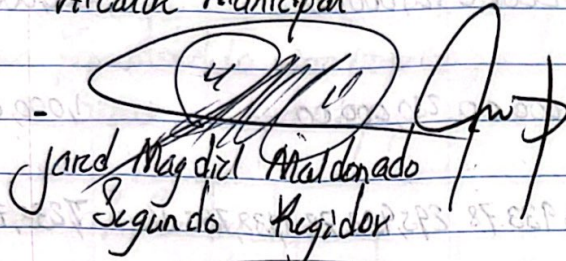 Alcalde Municipal
Jared Magdiel Maldonado
Segundo Regidor